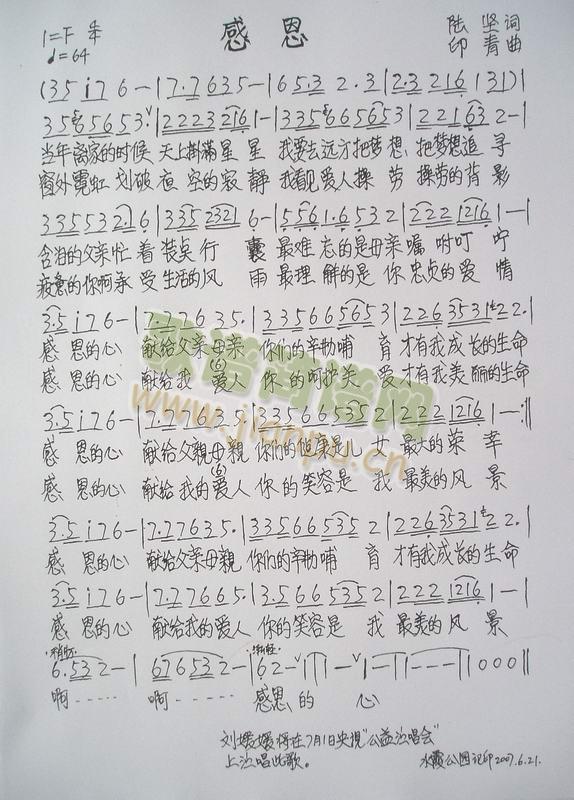 感恩
陆坚词
印青曲
1=F 4/4
♩=64
(35 i76-|7.7635-|65.3 2.3|2.3 216|31)|
35665653.|2223216 1-|3356656535|221632-|
当年离家的时候 天上掛满星星 我要去远方把梦想,把梦想追寻
窗外霓虹划破夜空的寂静 我看见爱人操劳操劳的背影
335533216|3352321 6-|55561.6532|2221216|1-|
含泪的父亲忙着装点行囊 最难忘的是母亲嘱咐叮咛
疲惫的你啊承受生活的风雨 最理解的是你忠贞的爱情
3.5i76-|7.77635.|335665653|22635312 2.|
感恩的心 献给父亲母亲 你们的辛勤哺育 才有我成长的生命
感恩的心 献给我爱人 你的呵护关爱 才有我美丽的生命
3.5i76-|7.77635.|335665352|2221216|1-:|
感恩的心 献给父親母親 你们的健康是儿女最大的荣幸
感恩的心 献给我的爱人 你的笑容是我最美的风景
3.5i76-|7.77635.|335665352|22635312 2.|
感恩的心 献给父亲母親 你们的辛勤哺育 才有我成长的生命
3.5i76-|7.77665.|3.5665352|2221216|1-|
感恩的心 献给我的爱人 你的笑容是我最美的风景
6.532-|676532-|62-|1|1-|1--|1---|1000||
啊····· 啊····· 感恩的心
刘媛媛将在7月1日央視"公益演唱会"
上演唱此歌。
水霞公园记印2007.6.21.
歌谱简谱网
www.jianpu.cn